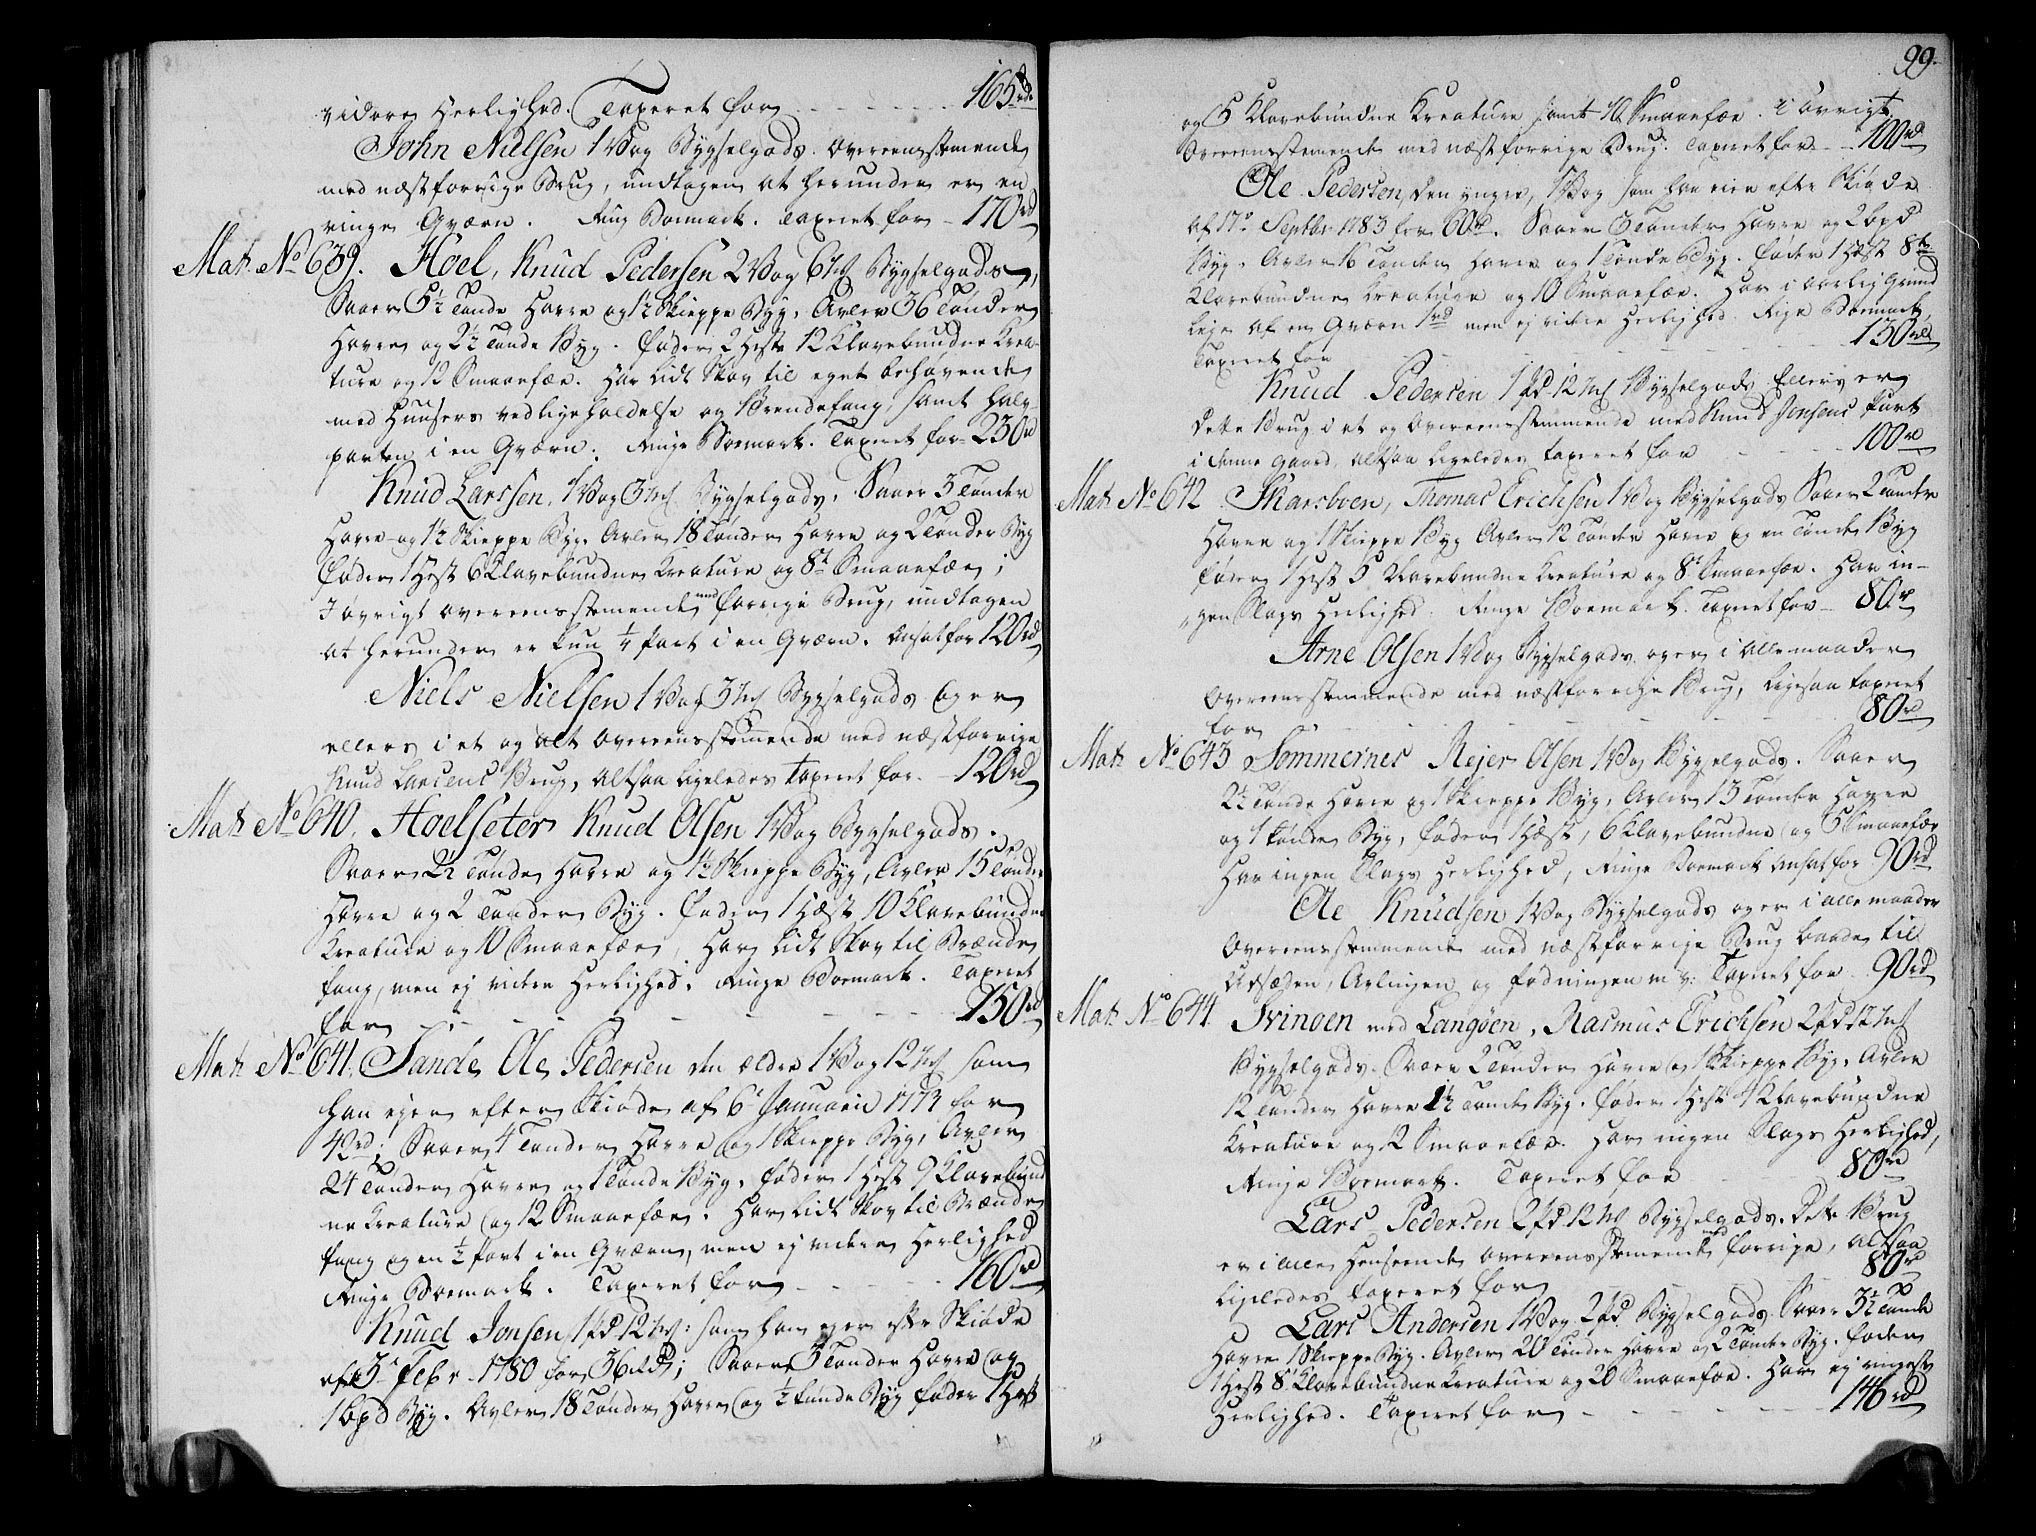 videre Herlighed. Taxeret for - - - - - - 165rd
John Nielsen 1 Vog Bygselgods. Overeensstemende
med næstforrige Brug, undtagen at herunder er en
ringe Qværn. Ring Boemark. Taxeret for - 170rd
Mat: No 639. Hoel, Knud Pedersen 2 Vog 6 mk Bygselgods,
Saaer 5½ Tønde Havre og 1½ Skieppe Byg, Avler 36 Tønder
Havre og 2½ Tønde Byg. Føder 2 Heste 12 Klavebundne Krea-
ture og 12 Smaaefæe. Har lidt Skov til eget behøvende
med Huusers vedligeholdelse og Brendefang, samt halv
parten i en Qværn. Ringe Boemark. Taxeret for - 230rd
Knud Larssen, 1 Vog 3 mk Bygselgods. Saaer 3 Tønder
Havre og 1½ Skieppe Byg. Avler 18 Tønder Havre og 2 Tønder Byg
Føder 1 Hest 6 Klavebundne Kreature og 8t Smaaefæe;
I øvrigt overeensstemende med forrige Brug, undtagen
at herunder er kun ¼ part i en Qværn. Ansat for 120rd
Niels Nielsen 1 Vog 3 mk Bygselgods og er
ellers i et og alt overeensstemende med næstforrige
Knud Larsens Brug, altsaa ligeledes taxeret for - 120rd
Mat: No 640. Hoelseter Knud Olsen 1 Vog Bygselgods.
Saaer 2½ Tønde Havre og 1½ Skieppe Byg, Avler 15 Tønder
Havre og 2 Tønder Byg. Føder 1 Hæst, 10 Klavebundne
Kreature og 10 Smaaefæe, Har lidt Skov til Brænde
fang, men ej videre Herlighed. Ringe Boemark. Taxeret
for - - - - - - - - - 150rd
Mat: No 641. Sande Ole Pedersen den ældre 1 Vog 12 mk som
han ejer efter Skiøde af 6t Januarii 1773 for
Saaer 4 Tønder Havre og 1 Skieppe Byg, Avler
24 Tønder Havre og 1 Tønde Byg, føder 1 Hest 9 Klavebund
ne Kreature og 12 Smaaefæe. Har lidt Skov til Brænde
fang og en ½ part i en Qværn, men ej videre Herlighed
Ringe Boemark. Taxeret for - - - - 160rd
Knud Jonsen 1 pd 12 mk: som han ejer efter Skiøde
af 3t Febr 1780 for 36 rd; Saaer 3 Tønder Havre og
1 bpd Byg. Avler 18 Tønder Havre og ½ tønde Byg føder 1 Hest
99.
og 5 Klavebundne Kreature samt 10 Smaaefæe. i øvrigt
Overeensstemende med næstforrige Brug. Taxeret for - - 100rd
Ole Pedersen den yngre, 1 Vog som han eier efter Skiøde
af 17de Septbr 1783 for 60rd. Saaer 3 Tønder Havre og 2 bpd
Byg, Avler 16 Tønder Havre og 1 Tønde Byg. føder 1 Hest 8te
Klavebundne Kreature og 10 Smaaefæe. Har i aarlig Grund
leje af en Qværn 1rd men ej videre Herlighed. Ringe Boemark,
Taxeret for - - - - - - - 130rd
Knud Pedersen 1 pd 12 mk Bygselgods Ellers er
dette Brug i et og Overeensstemmende med Knud Jonsens Part
i denne Gaard, altsaa ligeledes taxeret for - - - - 100rd
Mat: No 642. Skarsboen, Thomas Erichsen 1 Vog Bygselgods Saaer 2 Tønder
Havre og 1 Skieppe Byg Avler 12 Tønder Havre og en Tønde Byg
føder 1 Hest 5 Klavebundne Kreature og 8t Smaaefæe. Har in-
gen Slags Herlighed. Ringe Boemark. Taxeret for - 80rd
Arne Olsen 1 Vog Bygselgods og er i alle maader
Overeensstemmende med næstforrige Brug, ligesaa taxeret
for - - - - - - - 80rd
Mat: No 643 Sommernes Rejer Olsen 1 Vog Bygselgods. Saaer
2½ Tønde Havre og 1 Skieppe Byg, Avler 13 Tønder Havre
og 1 tønde Byg, føder 1 Hæst, 6 Klavebundne og 5 Smaaefæe
Har ingen Slags Herlighed, Ringe Boemark ansat for 90rd
Ole Knudsen 1 Vog Bygselgods og er i alle maader
Overeensstemmende med næstforrige Brug baade til
Udsæden, Avlingen og fødningen m. v. Taxeret for - 90rd
Mat: No 644. Svinøen med Langøen, Rasmus Erichsen 2 pd 12 mk
Bygselgods. Saaer 2 Tønder Havre og 1 Skieppe Byg, Avler
12 Tønder Havre 1½ Tønde Byg. føder 1 Hest 4 Klavebundne
Kreature og 12 Smaaefæe. Har ingen Slags Herlighed,
Ringe Boemark. Taxeret for - - 80rd
Lars Pedersen 2 pd 12 mk Bygselgods. Dette Brug
er i alle Henseende overeensstemende med forrige, altsaa
ligeledes taxeret for - - - - - 80rd
Lars Andersen 1 Vog 2 pd Bygselgods. Saaer 3½ Tønde
Havre 1 Skieppe Byg. Avler 20 Tønder Havre og 2 Tønder Byg. føder
1 Hest 8t Klavebundne Kreature og 20 Smaaefæe. Har ej ringeste
Herlighed. Taxeret for - - - - - - 146rd